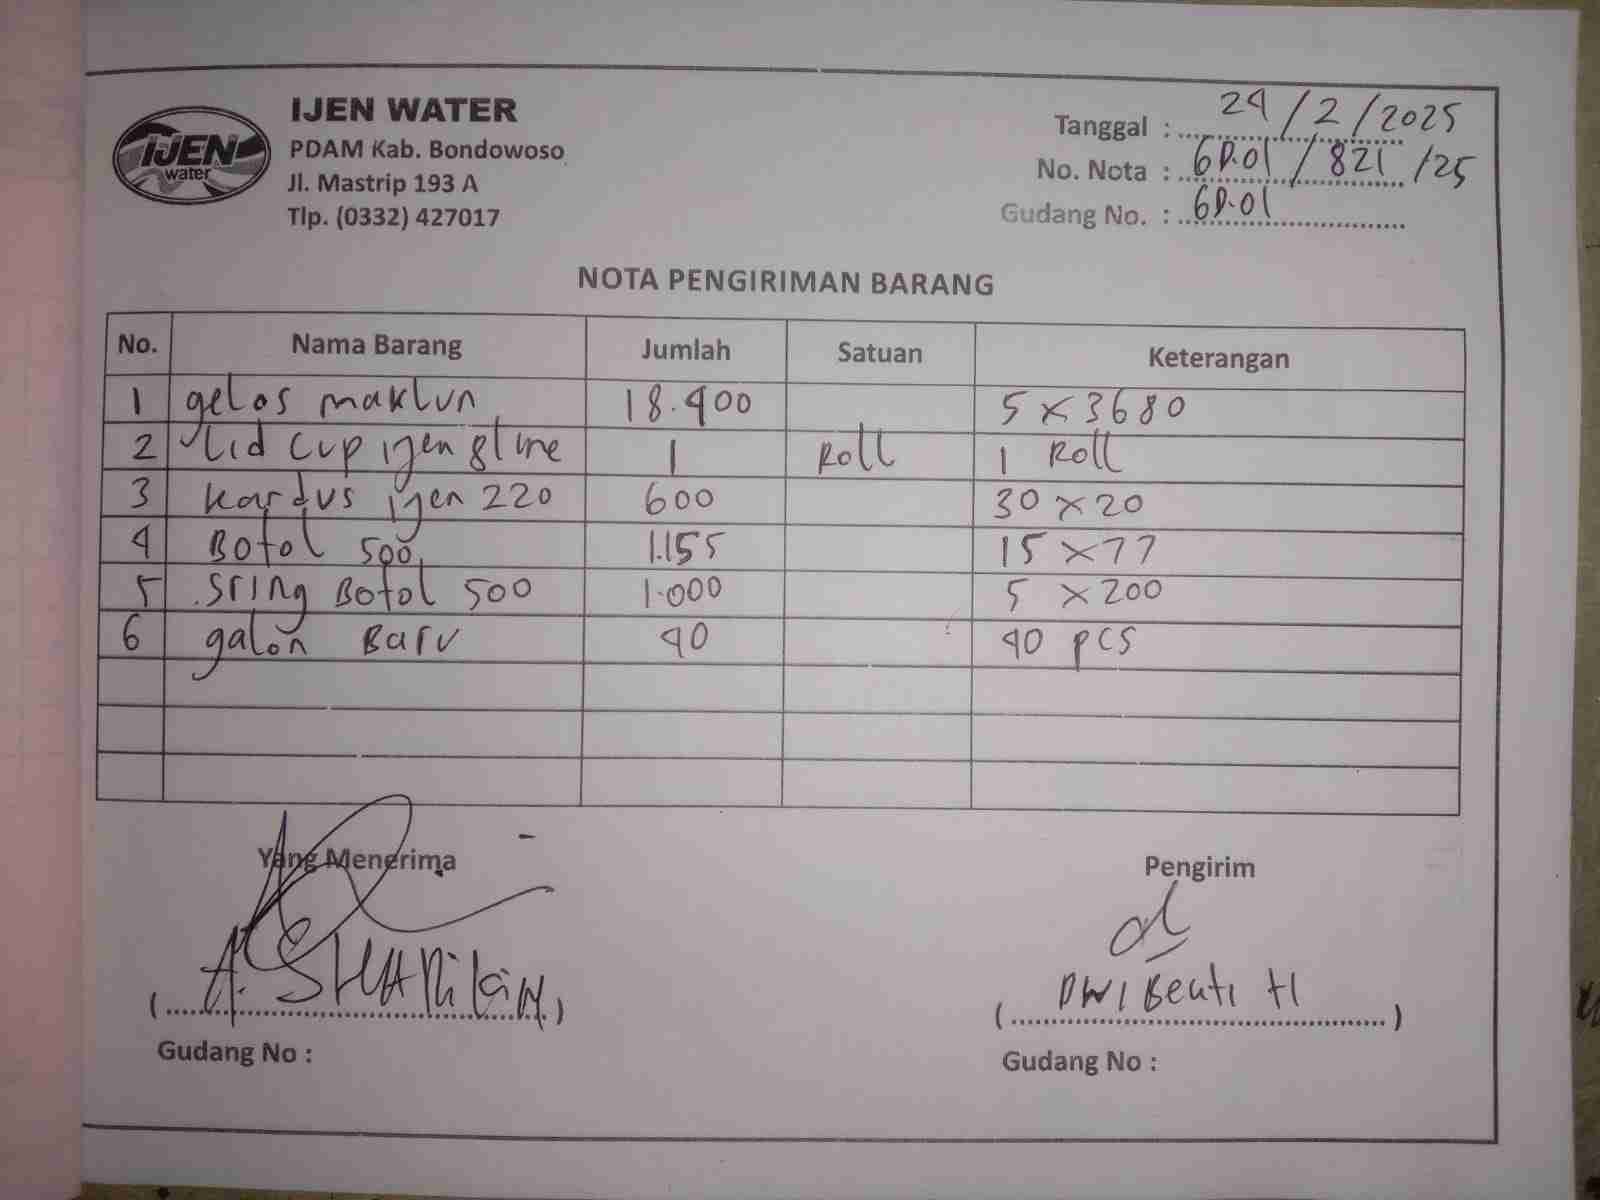 IJEN WATER
IJEN water
PDAM Kab. Bondowoso
Jl. Mastrip 193 A
Tlp. (0332) 427017
Tanggal : 24/2/2025
No. Nota : GD.01 / 821 /25
Gudang No. : GD.01
NOTA PENGIRIMAN BARANG
No. Nama Barang Jumlah Satuan Keterangan
1 gelas maklun 18.400 5 x 3680
2 Lid cup ijen 8 line 1 Roll 1 Roll
3 kardus ijen 220 600 30 x 20
4 Botol 500 1.155 15 x 77
5 Sring Botol 500 1.000 5 x 200
6 galon Baru 40 40 pcs
Yang Menerima Pengirim
(A.) (DWI H)
Gudang No : Gudang No :